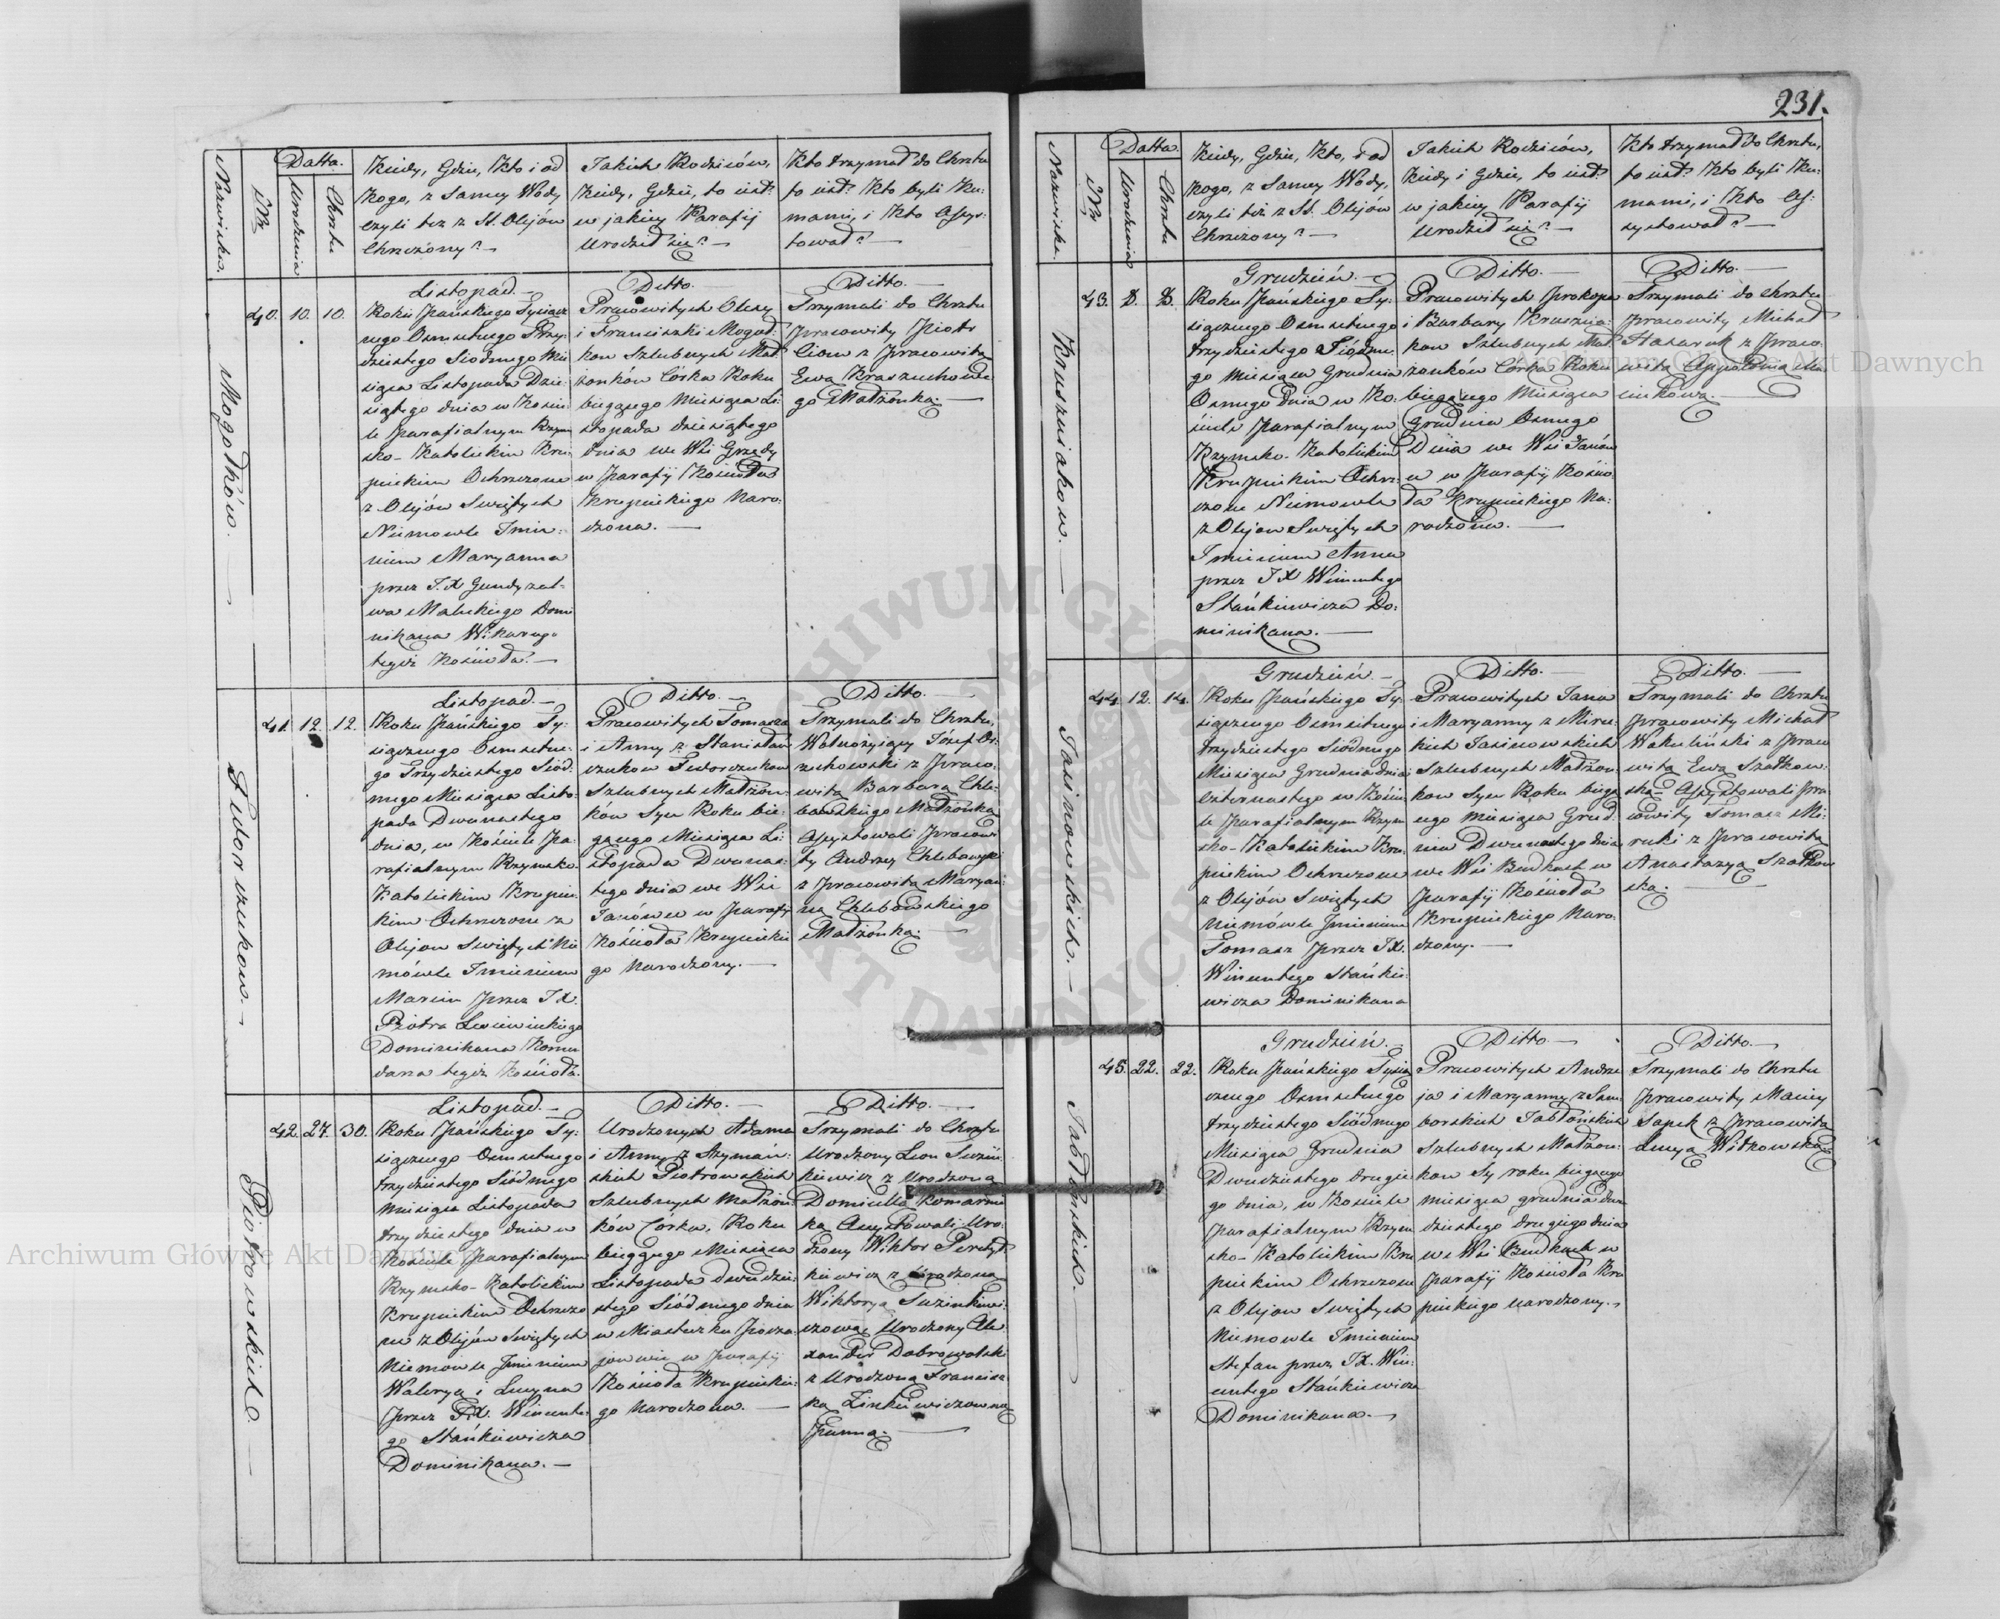 231.
Nazwisko.
Nr
Datta.
Urodzenia
Chrztu
Kiedy, Gdzie, Kto i od
Kogo, z Samey Wody
czyli też z SS. Olejów
Chrzczony? —
Jakich Rodziców,
Kiedy, Gdzie, to iest?
w jakiey Parafij
Urodził się? —
Kto trzymał do Chrztu
to iest? Kto byli Ku:
mami, i Kto Assys:
tował? —
Mogołków. —
40. 10. 10.
Listopad. —
Roku Pańskiego Tysiącz
nego Osmsetnego Trzy:
dziestego Siódmego Mie
siąca Listopada Dzie:
siątego dnia w Kościе:
le Parafialnym Rzym
sko-Katolickim Kru:
pieckim Ochrzczone
z Olejów Swiętych
Niemowle Imie:
niem Maryanna
przez J.X.
Domi
nikana Wikarego
tegoż Kościoła. —
Ditto. —
Pracowitych
i Franciszki Mogoł:
kow Szlubnych Mał
żonków Córka Roku
bieżącego Miesiąca Li:
stopada dziesiątego
dnia we Wsi Grzędy
w Parafij Kościoła
Krupieckiego Naro:
dzona. —
Ditto. —
Trzymali do Chrztu
Pracowity Piotr
z Pracowitą
Ewą
go Małżonką. —
Fedorczukow. —
41. 12. 12.
Listopad. —
Roku Pańskiego Ty:
siącznego Osmsetne:
go Trzydziestego Siód:
mego Miesiąca Listo:
pada Dwunastego
dnia, w Kościele Pa:
rafialnym Rzymsko:
Katolickim Krupie:
ckim Ochrzczone z
Olejow Swiętych Nie
mówle Imieniem
Marcin przez J.X.
Piotra
Dominikana
tegoż Kościoła.
Ditto. —
Pracowitych Tomasza
i Anny z Stanisław
czuków Fedorczukow
Szlubnych Małżon:
ków Syn Roku bie:
żącego Miesiąca Li:
stopada Dwunas:
tego dnia we Wsi
Janówce w Parafij
Kościoła Krupieckie
go Narodzony. —
Ditto. —
Trzymali do Chrztu,
Wolnożyiący Józef
z Praco:
witą Barbarą Chle:
bowskiego Małżonką
Assystowali Pracowi
ty Andrzey Chlebowski
z Pracowitą Maryan:
ną Chlebowskiego
Małżonką. —
Piotrowskich. —
42. 27. 30.
Listopad. —
Roku Pańskiego Ty:
siącznego Osmsetnego
trzydziestego Siódmego
Miesiąca Listopada
trzydziestego dnia w
Kościele Parafialnym
Rzymsko-Katolickim
Krupieckim Ochrzczo
ne z Olejów Swiętych
Niemowle Imieniem
Walerya i Lucyna
przez J.X. Wincente:
go Stańkiewicza
Dominikana. —
Ditto. —
Urodzonych Adama
i Anny z Szymań:
skich Piotrowskich
Szlubnych Małżon:
ków Córka, Roku
bieżącego Miesiąca
Listopada dwudzie:
stego Siódmego dnia
w Miasteczku
w Parafij
Kościoła Krupieckie:
go Narodzona. —
Ditto. —
Trzymali do Chrztu
Urodzony Leon
z Urodzoną
Domicellą
Assystowali Uro:
dzony Wiktor
z Urodzoną
Wiktoryą
Urodzony Ale
xander Dobrowolski
z Urodzoną Francisz
ką
Panną. —
Nazwisko.
Nr
Datta.
Urodzenia
Chrztu
Kiedy, Gdzie, Kto, i od
Kogo, z Samey Wody,
czyli też z SS. Olejów
Chrzczony? —
Jakich Rodziców,
Kiedy i Gdzie, to iest?
w jakiey Parafij
Urodził się? —
Kto trzymał do Chrztu,
to iest? Kto byli Ku:
mami, i Kto As:
systował? —
Kruszniakow. —
43. 8. 8.
Grudzień. —
Roku Pańskiego Ty:
siącznego Osmsetnego
trzydziestego Siódme:
go Miesiąca Grudnia
Osmego Dnia w Ko:
ściele Parafialnym
Rzymsko-Katolickim
Krupieckim Ochrz:
czone Niemowle
z Olejow Swiętych
Imieniem Anna
przez J X Wincentego
Stańkiewicza Do:
minikana. —
Ditto. —
Pracowitych Prokopa
i Barbary Krusznia:
kow Szlubnych Mał
żonków Córka Roku
bieżącego Miesiąca
Grudnia Osmego
Dnia we Wsi Janów
w Parafij Kościo:
ła Krupieckiego Na:
rodzona. —
Ditto. —
Trzymali do Chrztu
Pracowity Michał
z Praco:
witą Appolonią
Jasinowskich. —
44. 12. 14.
Grudzień. —
Roku Pańskiego Ty:
siącznego Osmsetnego
trzydziestego Siódmego
Miesiąca Grudnia dnia
Czternastego w Kościе:
le Parafialnym Rzym
sko-Katolickim Kru:
pieckim Ochrzczone
z Olejów Swiętych
Niemówle Imieniem
Tomasz przez J.X.
Wincentego Stańkie:
wicza Dominikana
Ditto. —
Pracowitych Jana
i Maryanny z Miru:
kich Jasinowskich
Szlubnych Małżon:
kow Syn Roku bieżą
cego Miesiąca Grud:
nia Dwunastego dnia
we Wsi Budkach w
Parafij Kościoła
Krupieckiego Naro:
dzony. —
Ditto. —
Trzymali do Chrztu
Pracowity Michał
Wakuliński z Praco
witą Ewą Szatkow:
ską Assystowali Pra:
cowity Tomasz Mi:
rucki z Pracowitą
Anastazyą Szatkow
ską. —
Jabłońskich. —
45. 22. 22.
Grudzień. —
Roku Pańskiego Tysią
cznego Osmsetnego
trzydziestego Siódmego
Miesiąca Grudnia
Dwudziestego drugie
go dnia, w Kościele
Parafialnym Rzym
sko-Katolickim Kru
pieckim Ochrzczone
z Olejow Swiętych
Niemowle Imieniem
Stefan przez J.X. Win:
centego Stańkiewicza
Dominikana. —
Ditto. —
Pracowitych Andrze
ja i Maryanny z Sam
borskich Jabłońskich
Szlubnych Małżon:
kow Sy roku bieżącego
miesiąca grudnia dwu
dziestego drugiego dnia
we Wsi Budkach w
parafij Kościoła Kru
pieckiego narodzony. —
Ditto. —
Trzymali do Chrztu
Pracowity Maciey
Sapek z Pracowitą
Łucyą Witkowską
Archiwum Główne Akt Dawnych
Archiwum Główne Akt Dawnych
ARCHIWUM GŁÓWNE
AKT DAWNYCH